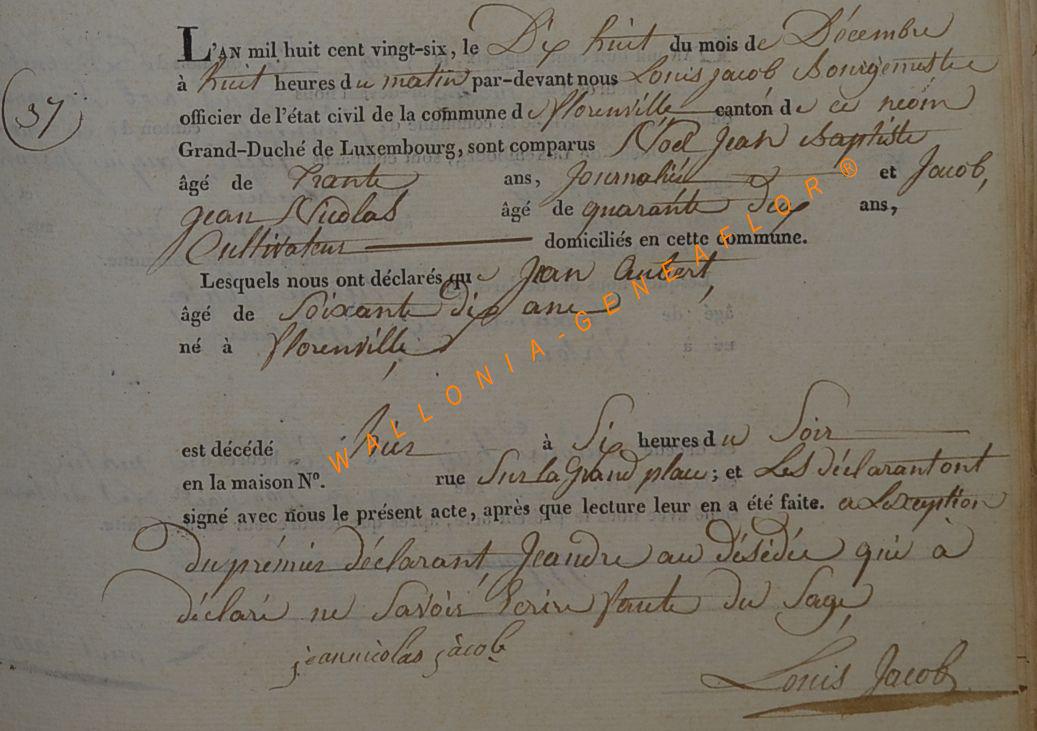 37
L'AN mil huit cent vingt-six, le Dix huit du mois de Décembre
à huit heures du matin par-devant nous Louis Jacob Bourgemestre
officier de l'état civil de la commune de florenville canton de ce neom
Grand-Duché de Luxembourg, sont comparus Noël Jean Baptiste
âgé de Trante ans, Journalier et Jacob,
jean Nicolas âgé de quarante dix ans,
Cultivateur domiciliés en cette commune.
Lesquels nous ont déclarés que Jean Aubert,
âgé de Soixante dix ans
né à florenville,
est décédé hier à Six heures du Soir
en la maison N°. rue Sur la Grand place; et Les déclarant ont
signé avec nous le présent acte, après que lecture leur en a été faite. a Lexception
du prémier déclarant, Jeandre au désédée qui à
déclaré ne savoir Ecrire faute du Sage,
jeannicolas jàcob
Louis Jacob
WALLONIA-GENEAFLOR®